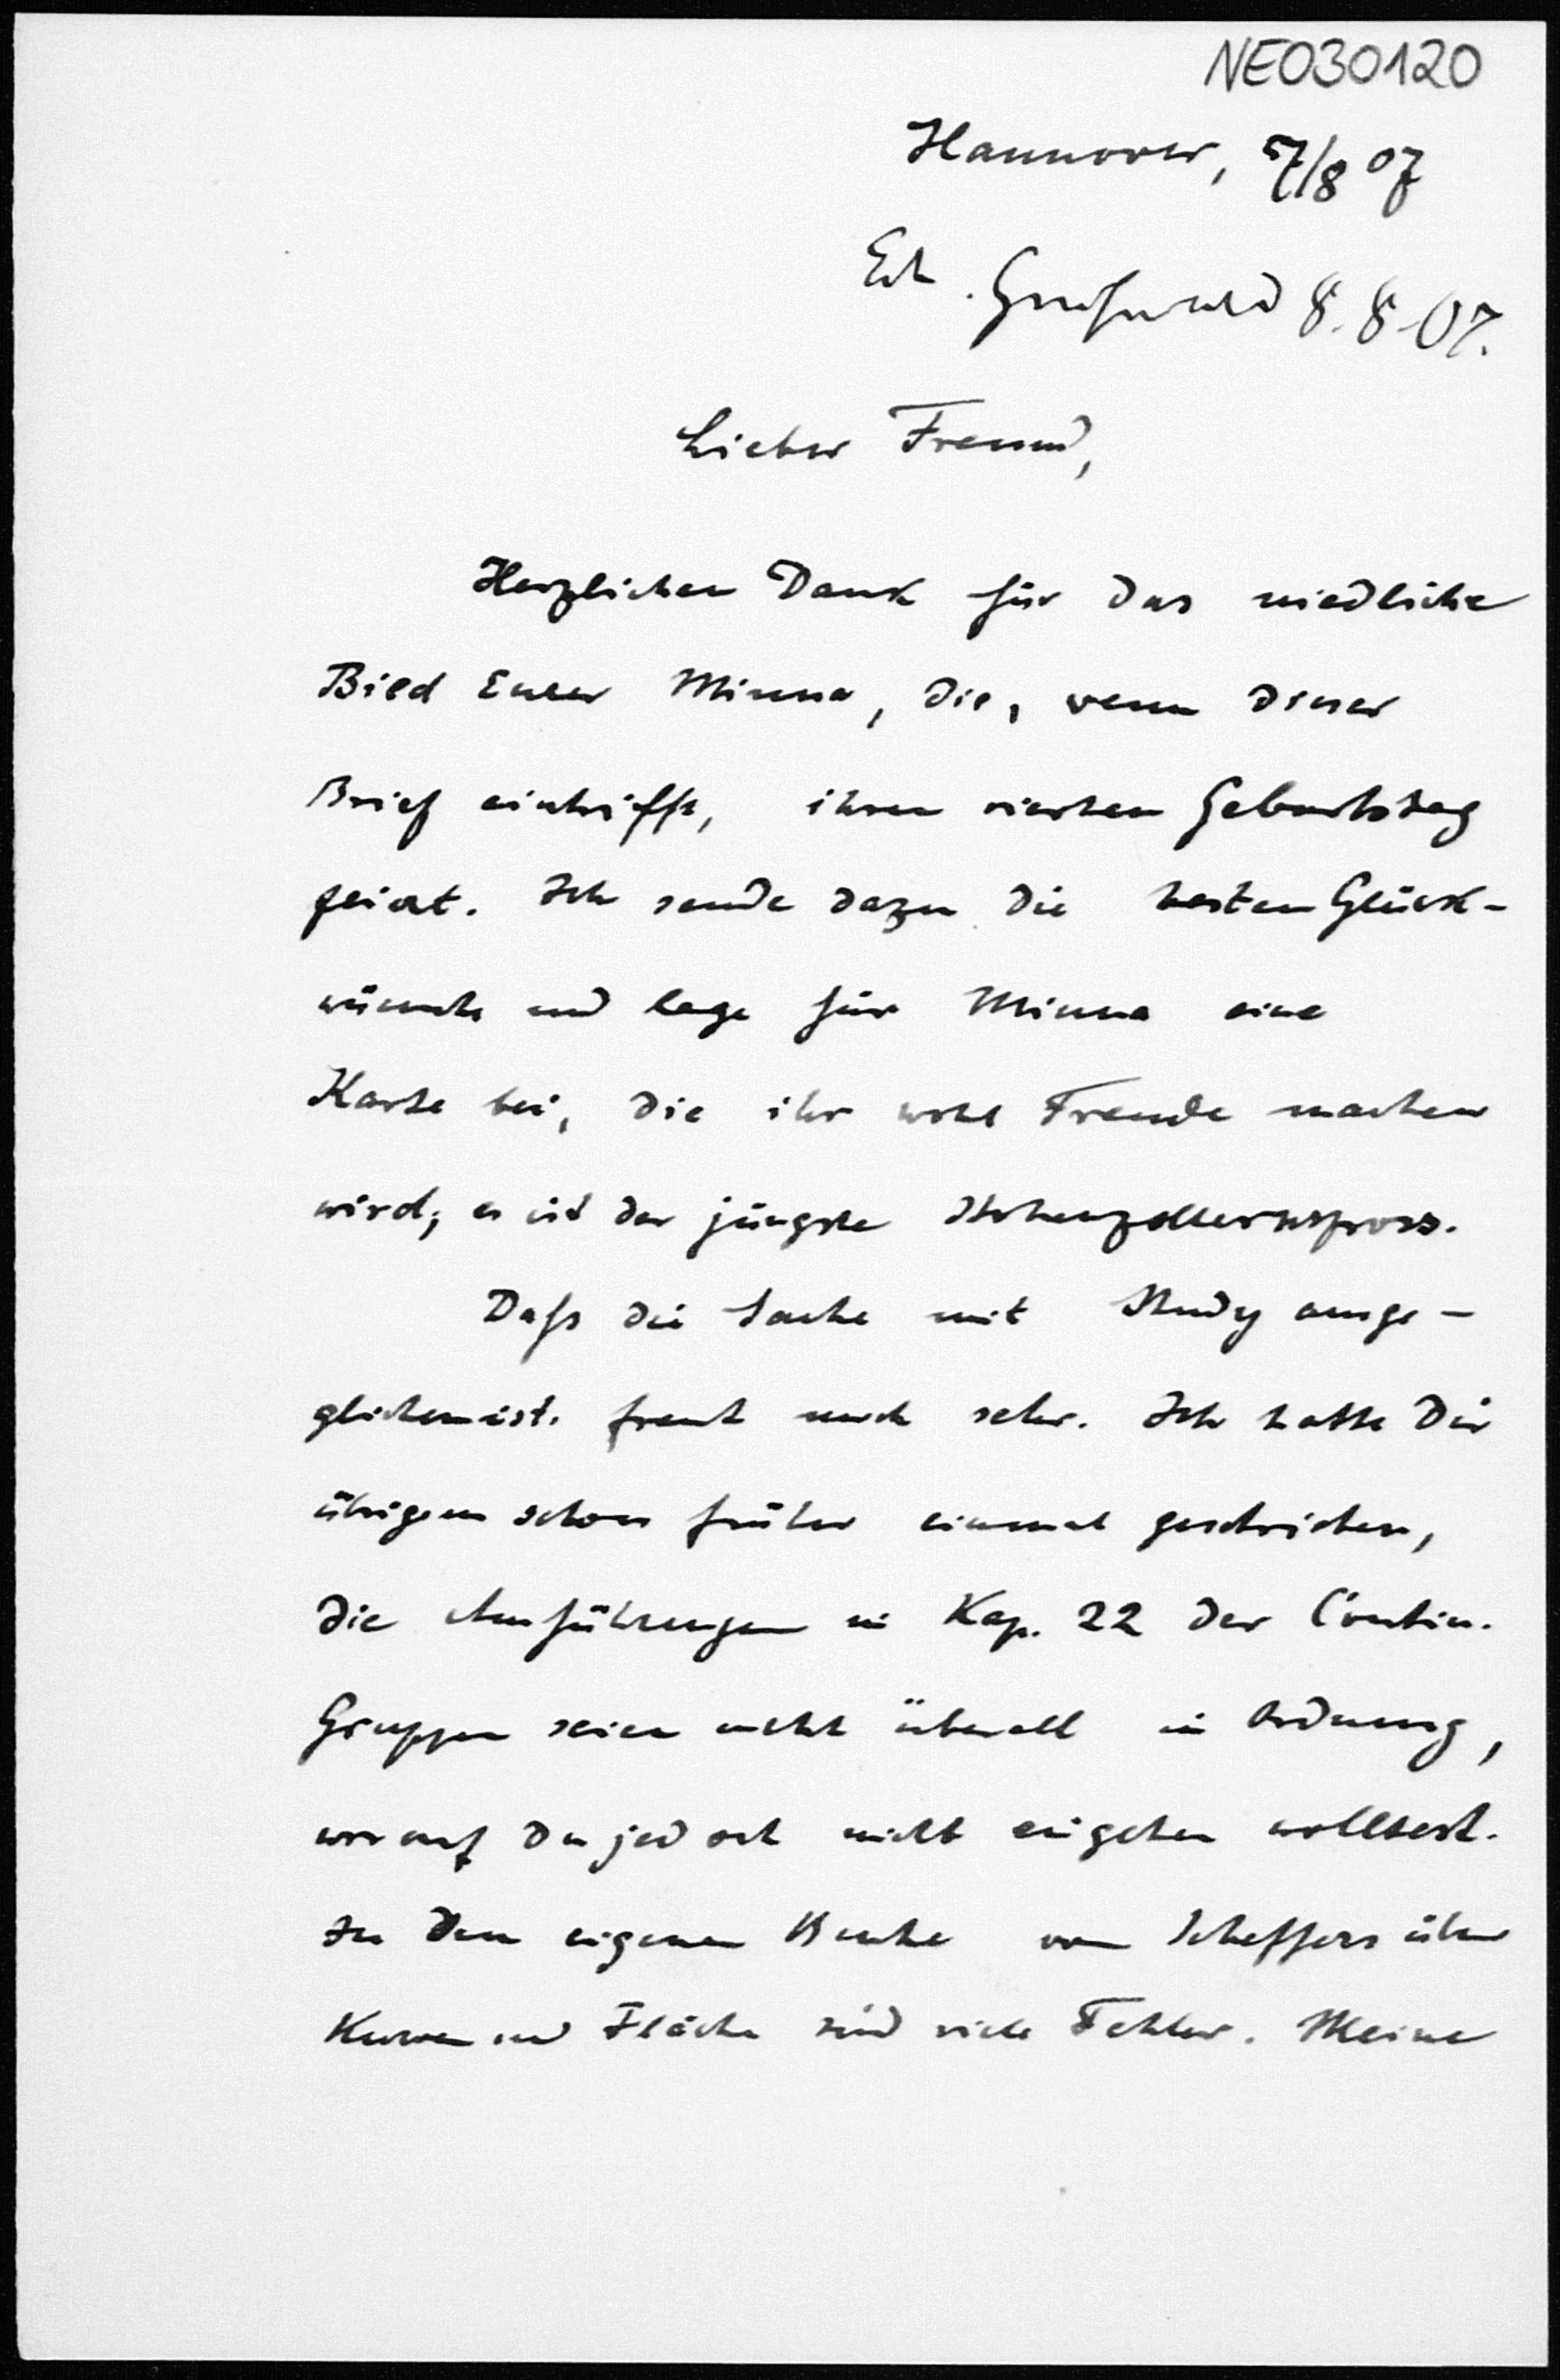 NE030120
Hannover, 7/8 07
Erh. Greifswald 8.8.07.
Lieber Freund,
Herzlichen Dank für das niedliche
Bild Eurer Minna, die, wenn dieser
Brief eintrifft, ihren vierten Geburtstag
feiert. Ich sende dazu die besten Glück-
wünsche und lege für Minna eine
Karte bei, die ihr wohl Freude machen
wird; es ist der jüngste Hohenzollernspross.
Daß die Sache mit Study ausge-
glichen ist, freut mich sehr. Ich hatte Dir
übrigens schon früher einmal geschrieben,
die Ausführungen in Kap. 22 der Contin.
Gruppen seien nicht überall in Ordnung,
worauf Du jedoch nicht eingehen wolltest.
In dem eigenen Buche von Scheffers über
Kurven und Fläche sind viele Fehler. Meine